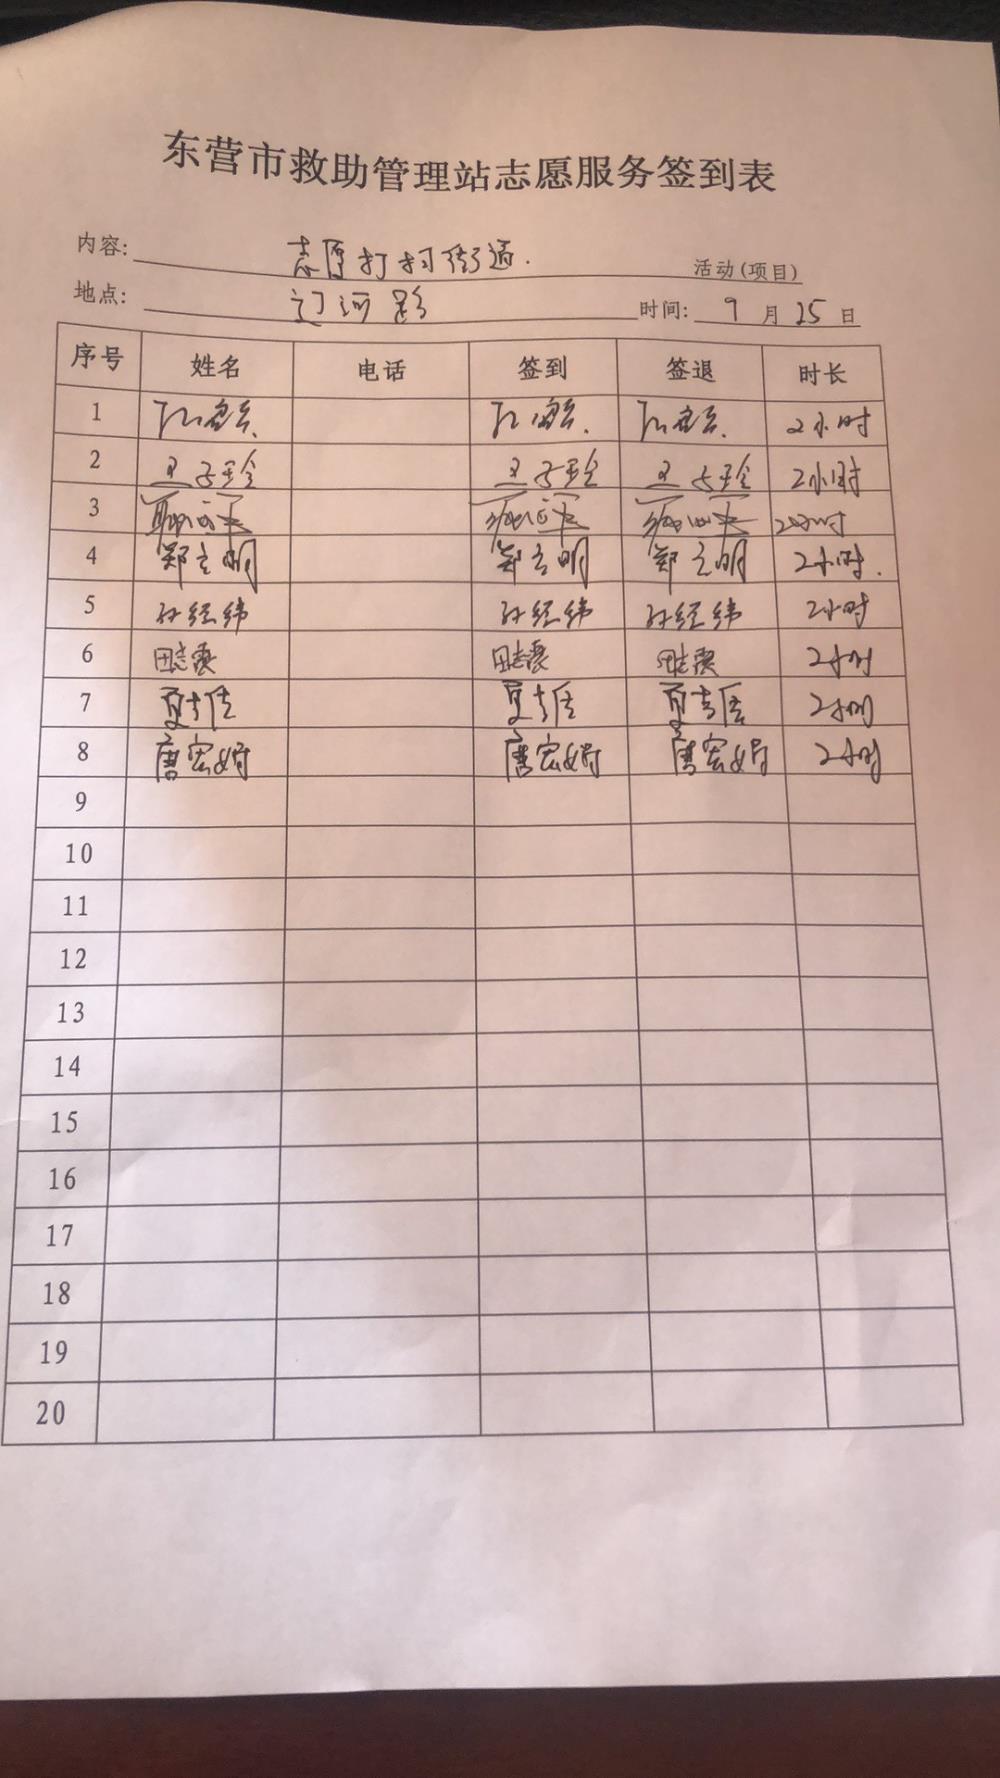 东营市救助管理站志愿服务签到表
内容: 志愿打扫街道. 活动(项目)
地点: 辽河路 时间: 9月25日
序号 姓名 电话 签到 签退 时长
1 2小时
2 王子玲 王子玲 王子玲 2小时
3 2小时
4 郑立明 郑立明 郑立明 2小时.
5 孙经纬 孙经纬 孙经纬 2小时
6 2小时
7 夏吉佳 夏吉佳 夏吉佳 2小时
8 唐宏娟 唐宏娟 唐宏娟 2小时
9
10
11
12
13
14
15
16
17
18
19
20